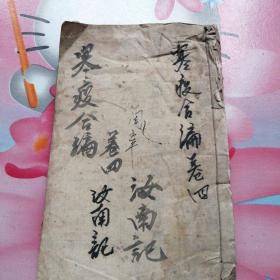 寒疫合编卷四
汝南記
卷四
汝南記
寒疫合编